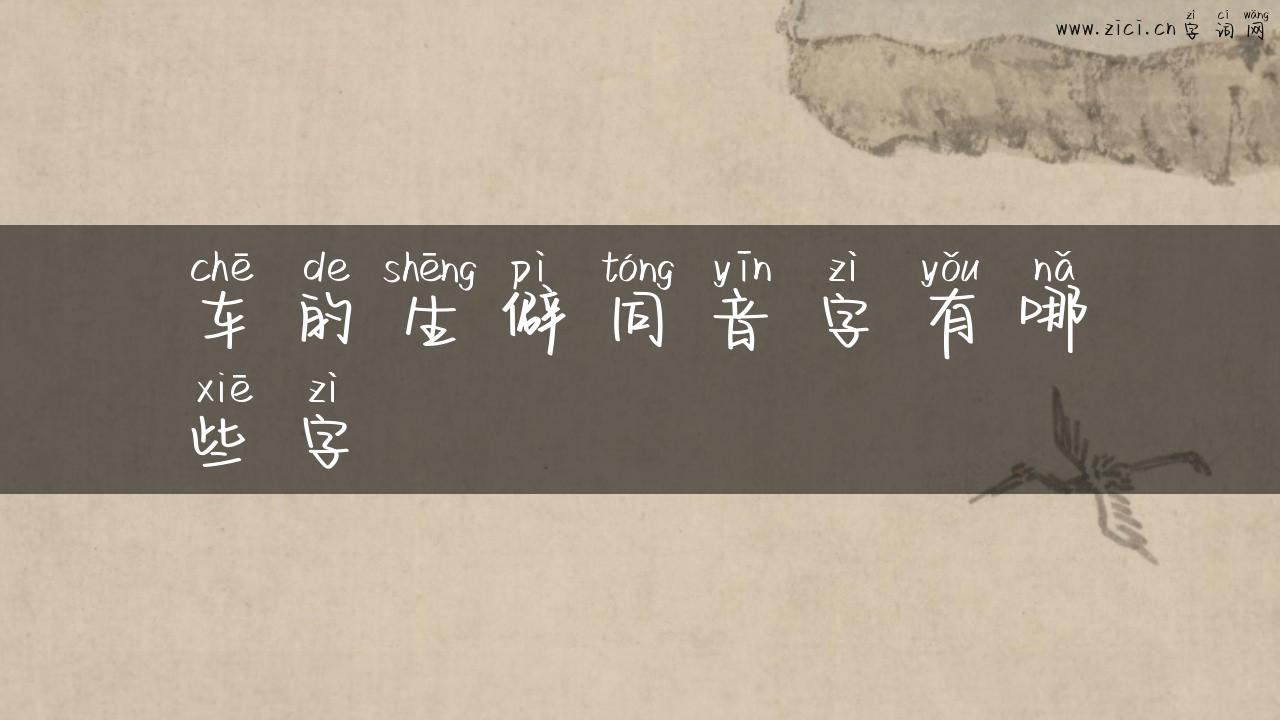 zì cí wǎng
www.zici.cn 字词网
chē de shēng pì tóng yīn zì yǒu nǎ
车的生僻同音字有哪
xiē zì
些字